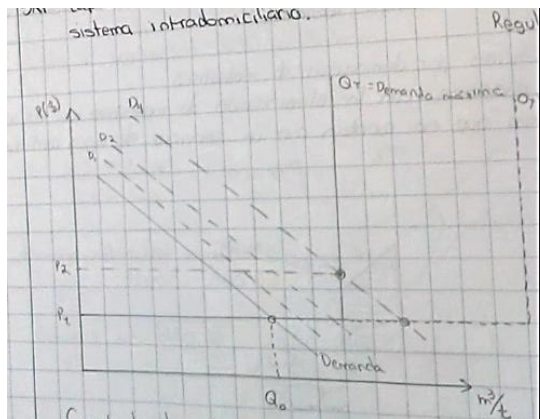 sistema intradomiciliario.
Regul
QT = Demanda máxima
P($)
D4
D2
D1
P2
P1
Demanda
Q0
m³/t